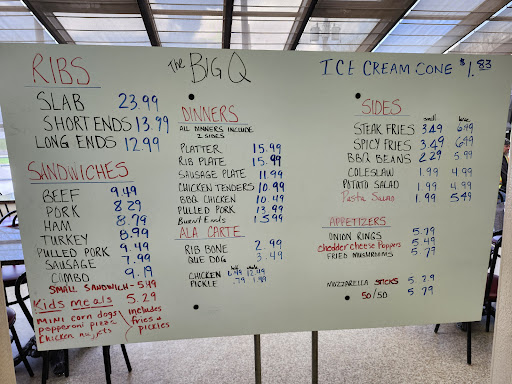 The BIG Q
ICE CREAM CONE $1.83
RIBS
SLAB 23.99
SHORT ENDS 13.99
LONG ENDS 12.99
SANDWICHES
BEEF 9.49
PORK 8.29
HAM 8.79
TURKEY 8.99
PULLED PORK 9.49
SAUSAGE 7.99
COMBO 9.19
SMALL SANDWICH - 5.49
Kids meals 5.29
MINI corn dogs
pepperoni pizza
Chicken nuggets
includes
fries &
pickles
DINNERS
ALL DINNERS INCLUDE
2 SIDES
PLATTER 15.99
RIB PLATE 15.99
SAUSAGE PLATE 11.99
CHICKEN TENDERS 10.99
BBQ CHICKEN 10.49
PULLED PORK 13.99
Burnt Ends 15.99
ALA CARTE
RIB BONE 2.99
QUE DOG 3.49
half whole
CHICKEN 6.49 12.49
PICKLE .79 1.99
SIDES
small large
STEAK FRIES 3.49 6.49
SPICY FRIES 3.49 6.49
BBQ BEANS 2.29 5.99
COLESLAW 1.99 4.99
POTATO SALAD 1.99 4.99
Pasta Salad 1.99 5.49
APPETIZERS
ONION RINGS 5.79
Chedder cheese Poppers 5.49
FRIED MUSHROOMS 5.79
MOZZARELLA STICKS 5.29
50/50 5.79